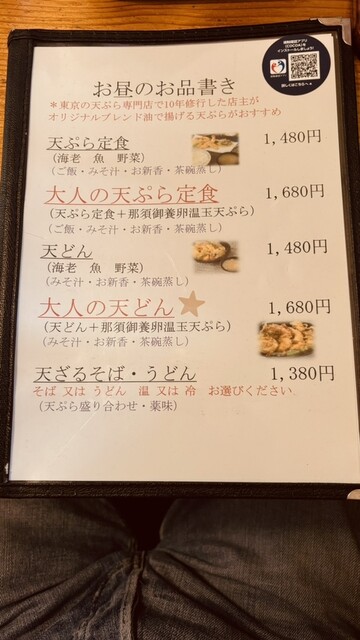 接触確認アプリ
(COCOA)を
インストールしましょう!
詳しくはこちらへ
お昼のお品書き
＊東京の天ぷら専門店で10年修行した店主が
オリジナルブレンド油で揚げる天ぷらがおすすめ
天ぷら定食 1,480円
(海老 魚 野菜)
(ご飯・みそ汁・お新香・茶碗蒸し)
大人の天ぷら定食 1,680円
(天ぷら定食＋那須御養卵温玉天ぷら)
(ご飯・みそ汁・お新香・茶碗蒸し)
天どん 1,480円
(海老 魚 野菜)
(みそ汁・お新香・茶碗蒸し)
大人の天どん 1,680円
(天どん＋那須御養卵温玉天ぷら)
(みそ汁・お新香・茶碗蒸し)
天ざるそば・うどん 1,380円
そば 又は うどん 温 又は 冷 お選びください
(天ぷら盛り合わせ・薬味)